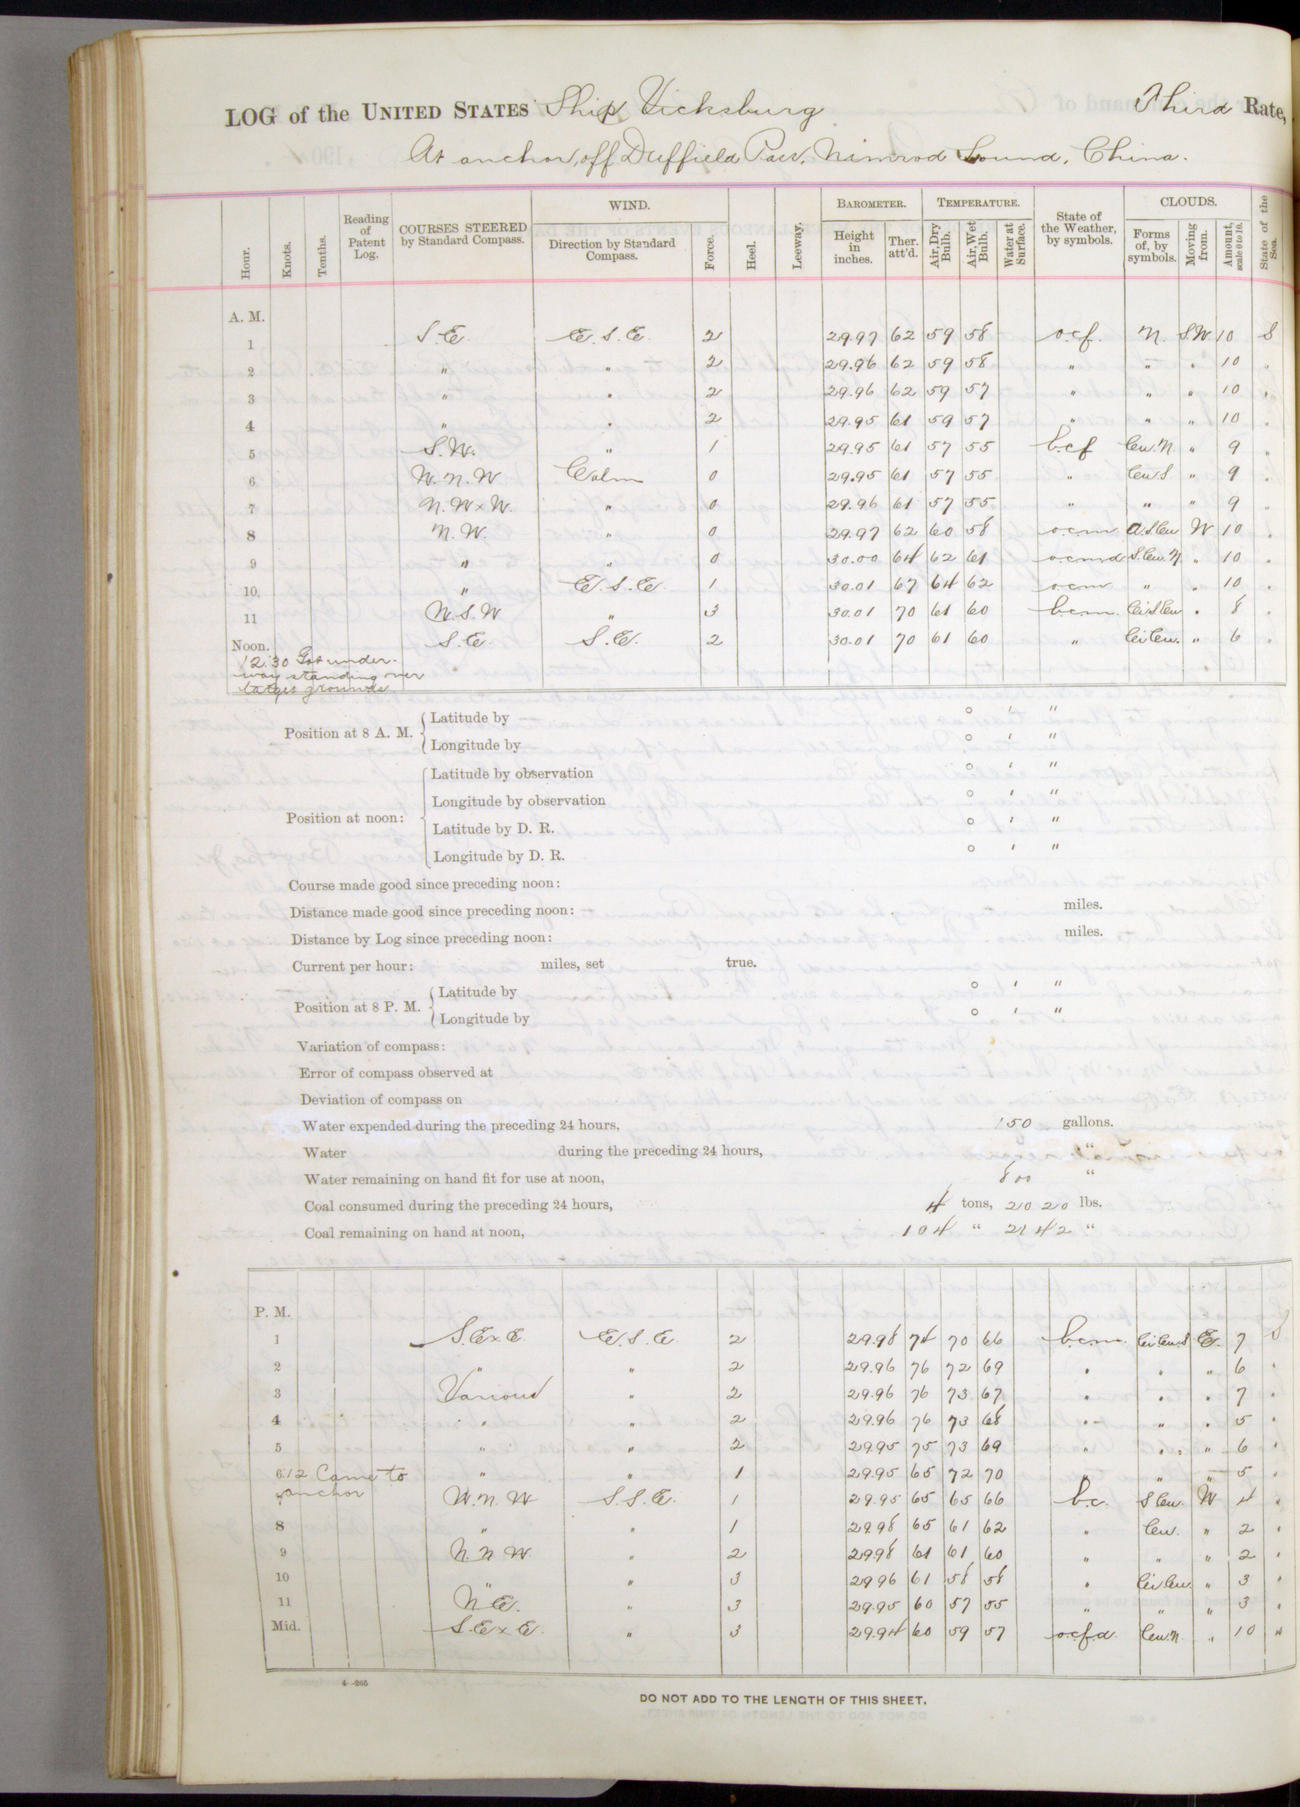 LOG of the UNITED STATES Ship Vicksburg Third Rate,
At anchor, off Duffield Pass, Nimrod Sound, China.
Hour. Knots. Tenths. Reading of Patent Log. COURSES STEERED by Standard Compass. WIND. Direction by Standard Compass. Force. Heel. Leeway. BAROMETER. Height in inches. Ther. att'd. TEMPERATURE. Air, Dry Bulb. Air, Wet Bulb. Water at Surface. State of the Weather, by symbols. CLOUDS. Forms of, by symbols. Moving from. Amount, scale 0 to 10. State of the Sea.
A. M.
1 S.E. E.S.E. 2 29.97 62 59 58 o.c.f. N. S.W 10 S
2 " " 2 29.96 62 59 58 " " " 10 "
3 " " 2 29.96 62 59 57 " " " 10 "
4 " " 2 29.95 61 59 57 " " " 10 "
5 S.W. " 1 29.95 61 57 55 b.c.f Cu.N " 9 "
6 W.N.W Calm 0 29.95 61 57 55 " Cu.S " 9 "
7 N.WxW. " 0 29.96 61 57 55 " " " 9 "
8 N.W. " 0 29.97 62 60 58 o.c.m A.S.Cu W 10 "
9 " " 0 30.00 64 62 61 o.c.m.d S.Cu.N " 10 "
10. " E.S.E. 1 30.01 67 64 62 o.c.m " " 10 "
11 W.S.W " 3 30.01 70 61 60 b.c.m. Ci.S.Cu " 8 "
Noon. S.E S.E. 2 30.01 70 61 60 " Ci.Cu. " 6 "
12:30 Got under-
way standing over
target grounds
Position at 8 A. M. Latitude by ° ' "
Longitude by ° ' "
Position at noon: Latitude by observation ° ' "
Longitude by observation ° ' "
Latitude by D. R. ° ' "
Longitude by D. R. ° ' "
Course made good since preceding noon:
Distance made good since preceding noon: miles.
Distance by Log since preceding noon: miles.
Current per hour: miles, set true.
Position at 8 P. M. Latitude by ° ' "
Longitude by ° ' "
Variation of compass:
Error of compass observed at
Deviation of compass on
Water expended during the preceding 24 hours, 150 gallons.
Water during the preceding 24 hours, "
Water remaining on hand fit for use at noon, 800 "
Coal consumed during the preceding 24 hours, 4 tons, 2020 lbs.
Coal remaining on hand at noon, 104 " 2142 "
P. M.
1 S.ExE. E.S.E 2 29.98 74 70 66 b.c.m. Ci.Cu.S E. 7 S
2 " " 2 29.96 76 72 69 " " " 6 "
3 Various " 2 29.96 76 73 67 " " " 7 "
4 " " 2 29.96 76 73 68 " " " 5 "
5 " " 2 29.95 75 73 69 " " " 6 "
6:12 Came to " " 1 29.95 65 72 70 " " " 5 "
anchor W.N.W S.S.E. 1 29.95 65 65 66 b.c. S.Cu. W 4 "
8 " " 1 29.98 65 61 62 " Cu. " 2 "
9 N.N.W. " 2 29.98 61 61 60 " " " 2 "
10 " " 3 29.96 61 58 58 " Ci.Cu. " 3 "
11 N.E. " 3 29.95 60 57 55 " " " 3 "
Mid. S.ExE. " 3 29.94 60 59 57 o.c.f.d. Cu.N. " 10 "
4-265
DO NOT ADD TO THE LENGTH OF THIS SHEET.